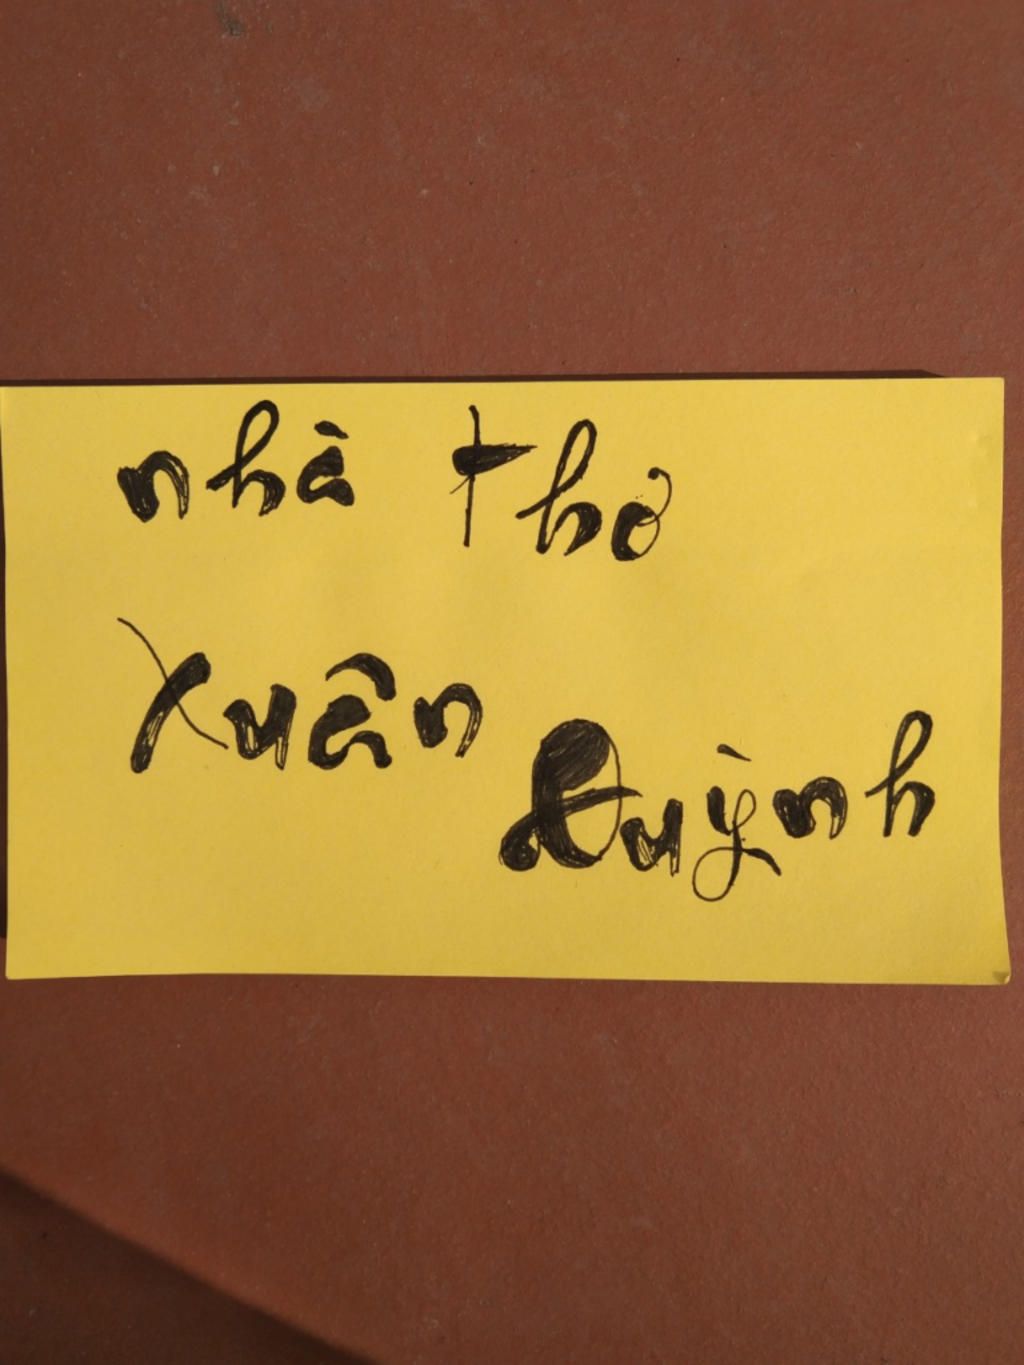 nhà thơ
Xuân Quỳnh